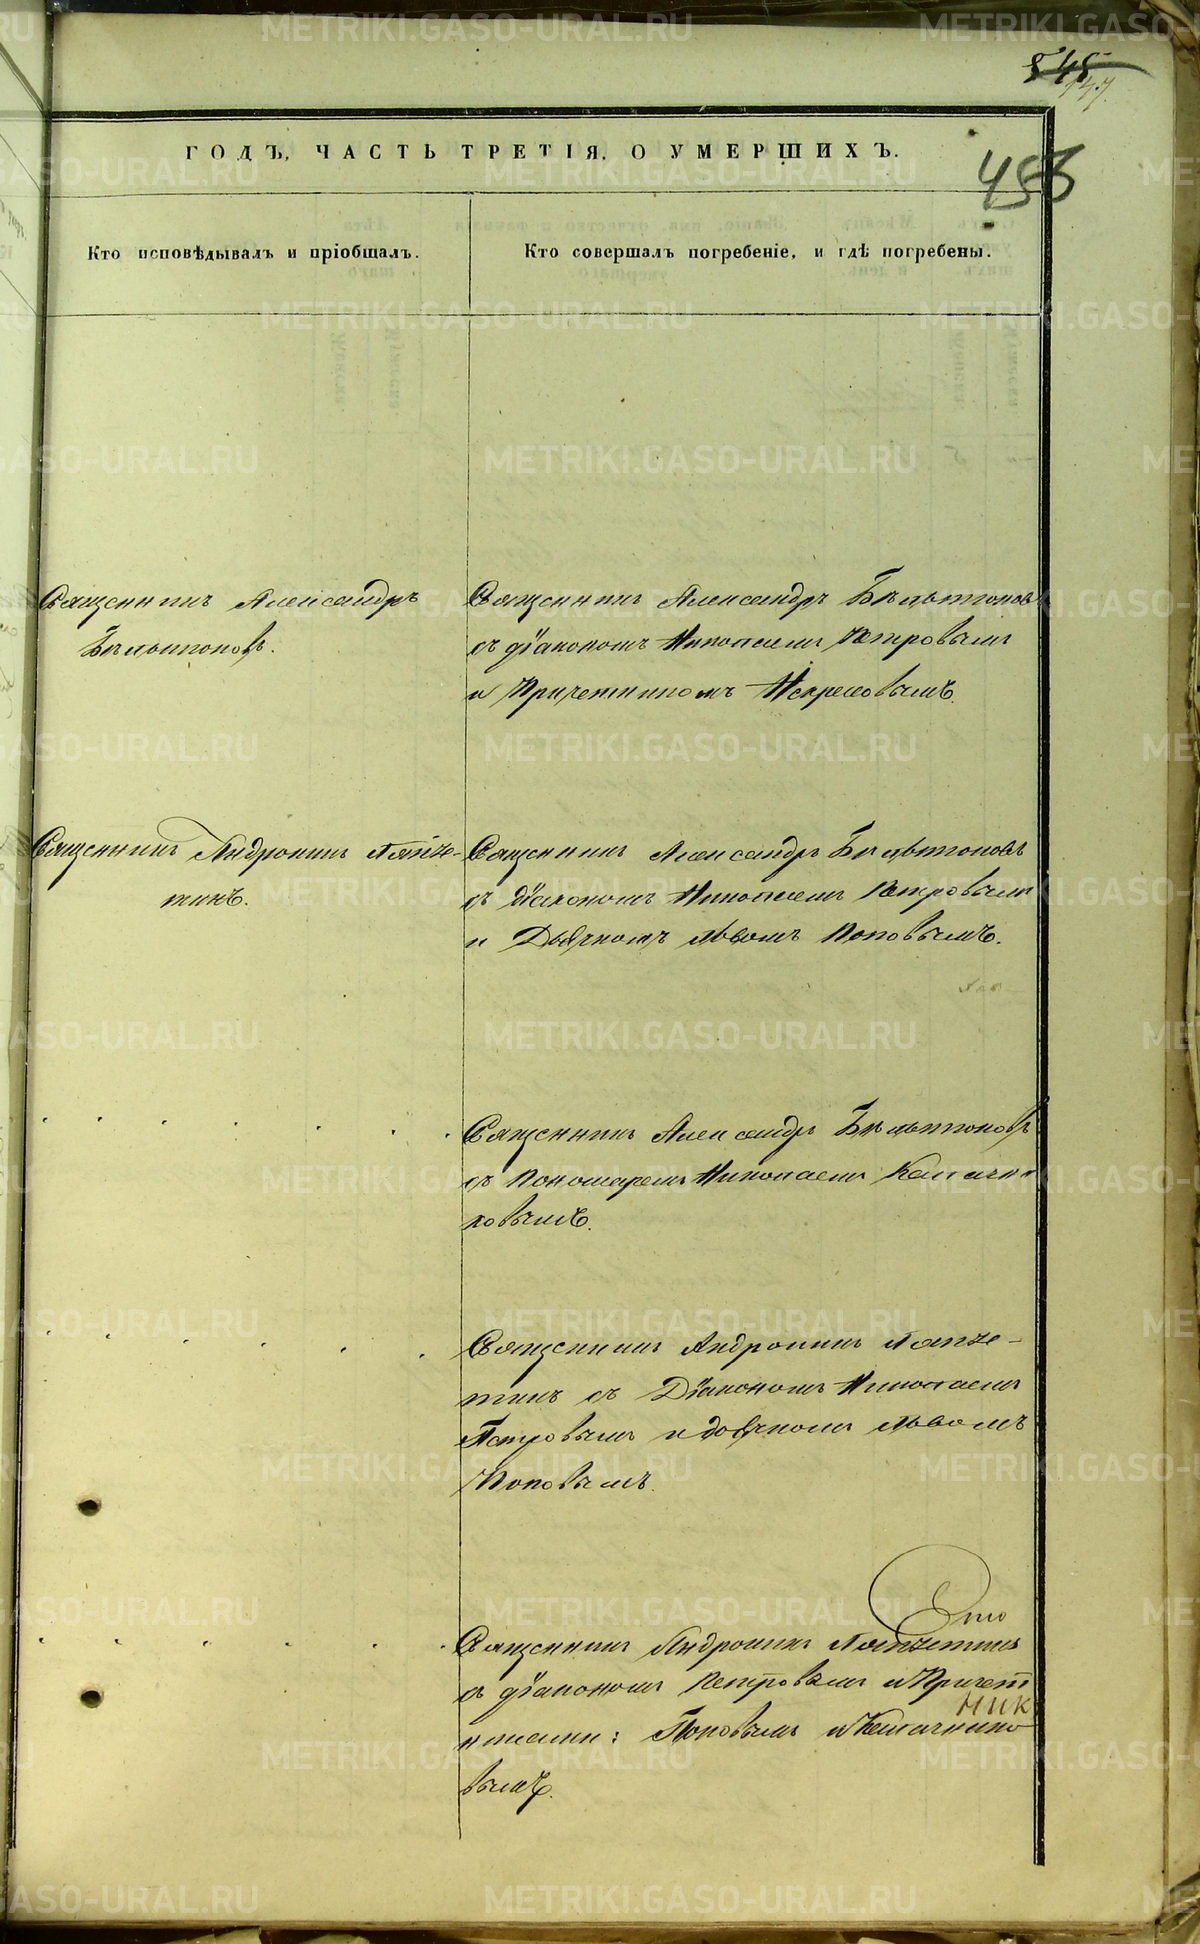 545
147
ГОДЪ, ЧАСТЬ ТРЕТІЯ, О УМЕРШИХЪ.
453
Кто исповѣдывалъ и пріобщалъ.
Кто совершалъ погребеніе, и гдѣ погребены.
Священникъ Александръ
Бѣльтюковъ.
Священникъ Александръ Бѣльтюковъ
съ діакономъ Николаемъ Петровымъ
и Причетникомъ
Священникъ Андроникъ
тинъ.
Священникъ Александръ Бѣльтюковъ
съ діакономъ Николаемъ Петровымъ
и Дьячкомъ Львомъ Поповымъ.
Священникъ Александръ Бѣльтюковъ
съ Пономаремъ Николаемъ
ковымъ.
Священникъ Андроникъ
тинъ съ Діакономъ Николаемъ
Петровымъ и дьячкомъ Львомъ
Поповымъ.
Священникъ Андроникъ
съ діакономъ Петровымъ и Причет
ник
никами: Поповымъ и
вымъ.
METRIKI.GASO-URAL.RU